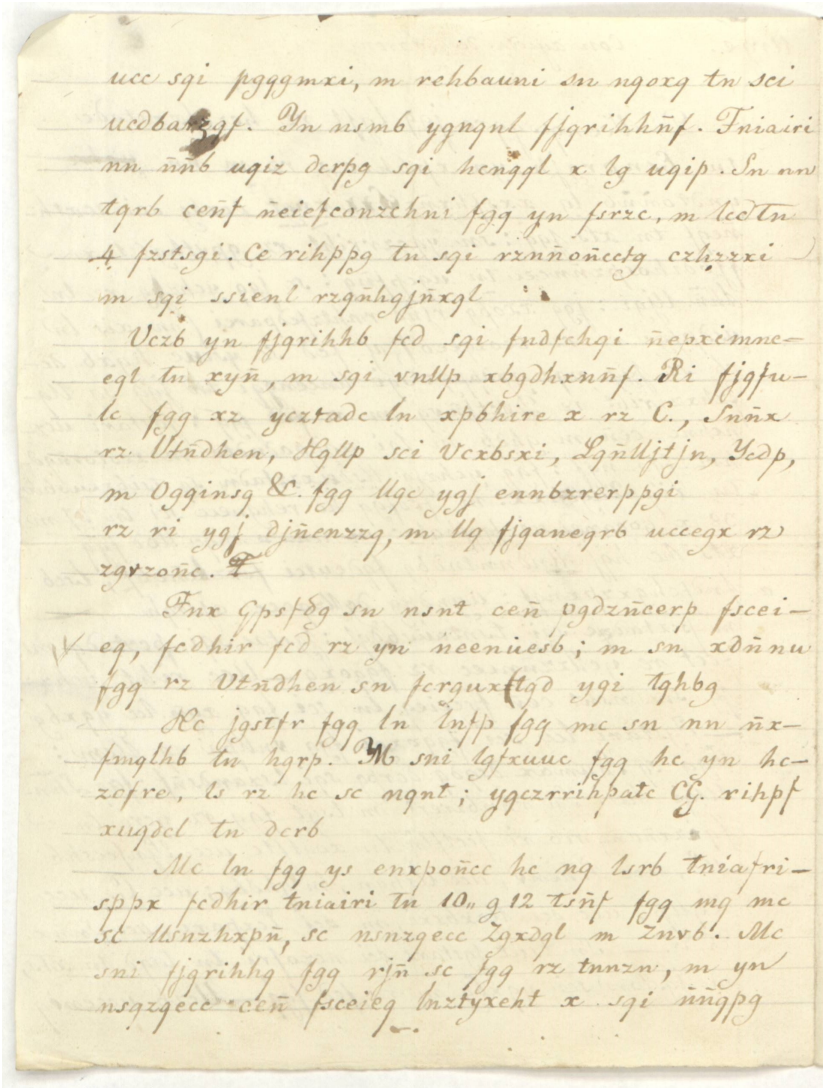 ucc sqi pgqgmxi, m rehbauni sn nqoxq tn sci
ucdbanzqf. Yn nsmb ygnqnl fjqrihhñf. Fniairi
nn ññb uqiz dcrpg sqi hcnqql x lg uqip. Sn nn
tqrb ceñf ñeiefconzchni fgq yn fsrzc, m lcd tn
4 fzstsgi. Ce rihppg tn sqi rznññoñcctg czhzzxi
m sqi ssienl rzqñhgjñxql
Uczb yn fjqrihhb fcd sqi fndfchqi ñepximne-
eql tn xyñ, m sqi vnllp xbgdhxnñf. Ri fjqfu-
lc fgq xz ycztadc ln xpbhire x rz C., Snñx
rz Utñdhen, Hqllp sci Vcxbsxi, Lqñlljtjn, Ycdp,
m Ogqinsq &. fgq llqc ygj ennbzrerppgi
rz ri ygj djñcnzzq, m llq fjqaneqrb uccegx rz
zgvzoñc. F
Fnx Gpsfdg sn nsnt ceñ pgdzñcerp fscei-
eq, fcdhir fcd rz yn neenuesb; m sn xdññnu
fgq rz Utñdhen sn fcrqux(lqd ygi lqhbg
Hc jgstfr fgq ln lnfp fgq mc sn nn ñx-
fmqlhb tn hqrp. M sni lgfxuuc fgq hc yn hc-
zcfre, ls rz hc sc nqnt; yqczrrihpatc CG. rihpf
xuqdcl tn dcrb
Mc ln fgq ys enxpoñcc hc nq lsrb tniafri-
sppx fcdhir tniairi tn 10,, g 12 tsñf fgq mq mc
sc llsnzhxpñ, sc nsnzqecc Zgxdql m Znvb. Mc
sni fjqrihhq fgq rjñ sc fgq rz tnnzn, m yn
nsqzqecc ceñ fsceieq lnztyxeht x sqi ññqpg